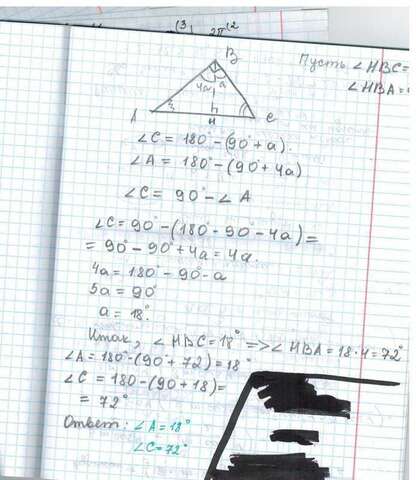 Пусть ∠HBC=
∠HBA=
B
4a a
A H C
∠C = 180° - (90° + a).
∠A = 180° - (90° + 4a)
∠C = 90° - ∠A
∠C = 90° - (180° - 90° - 4a) =
= 90° - 90° + 4a = 4a.
4a = 180° - 90° - a
5a = 90°
a = 18°.
Итак, ∠HBC = 18° => ∠HBA = 18·4 = 72°
∠A = 180° - (90 + 72) = 18°
∠C = 180 - (90 + 18) =
= 72°
Ответ: ∠A = 18°
∠C = 72°